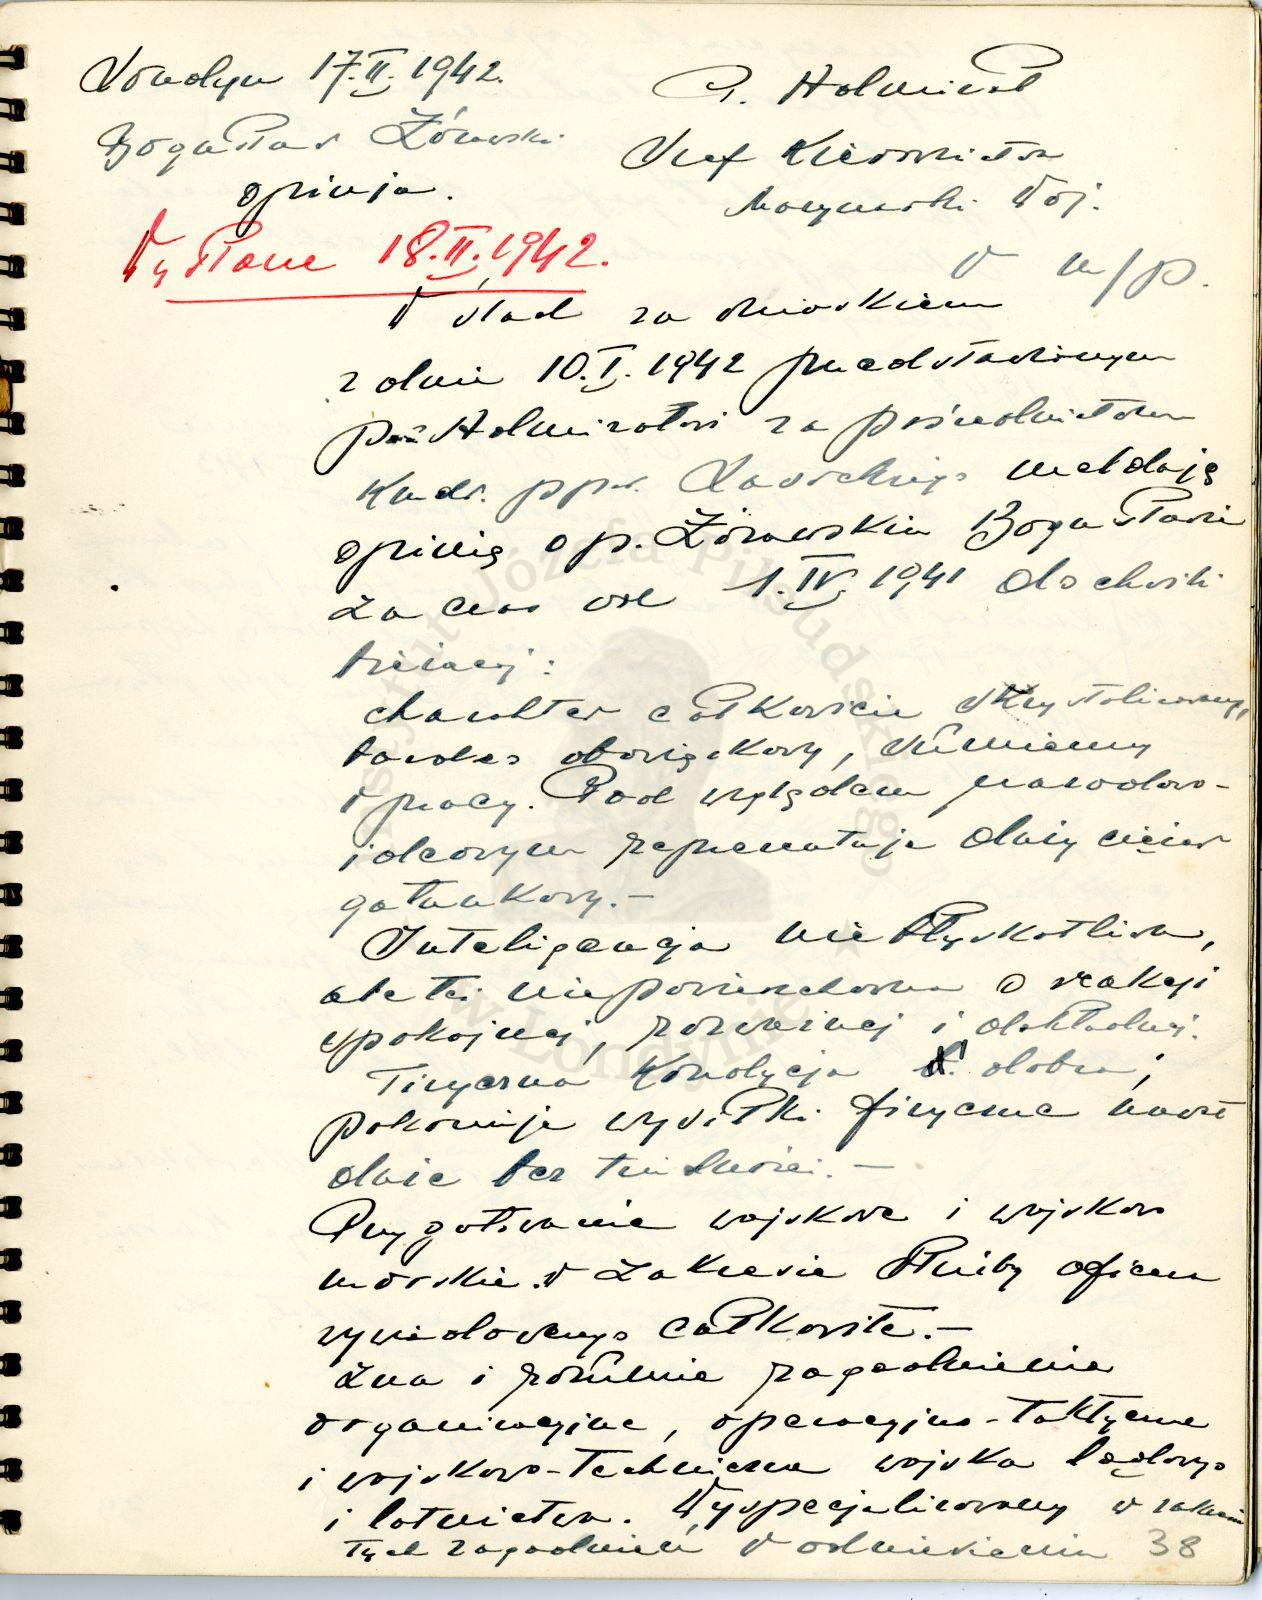 Londyn 17.II.1942.
Bogusław Żórawski
opinja.
P. Admirał
Szef Kierownictwa
Marynarki Woj.
w m/p.
Wysłane 18.II.1942.
W ślad za wnioskiem
z dnia 10.I.1942 przedstawionym
Admirałowi za pośrednictwem
Kmdr. ppor. meldują
opinię o p. Żórawskim Bogusławie
za czas od 1.IV.1941 do chwili
bieżącej:
charakter całkowicie skrystalizowany,
bardzo obowiązkowy, sumienny
w pracy. Pod względem narodowo-
ideowym reprezentuje duży ciężar
gatunkowy.—
Inteligencja nie błyskotliwa,
ale też nie powierzchowna o reakcji
spokojnej, rozważnej i dokładnej.
Fizyczna kondycja b. dobra;
pokonuje wysiłki fizyczne nawet
duże bez trudności.—
Przygotowanie wojskowe i wojskowo
morskie w zakresie służby oficera
całkowite.—
Zna i rozumie zagadnienia
organizacyjne, operacyjno-taktyczne
i wojskowo-techniczne wojska lądowego
i lotnictwa. Wyspecjalizowany w zakresie
tych zagadnień w odniesieniu 38
Instytut Józefa Piłsudskiego
w Londynie